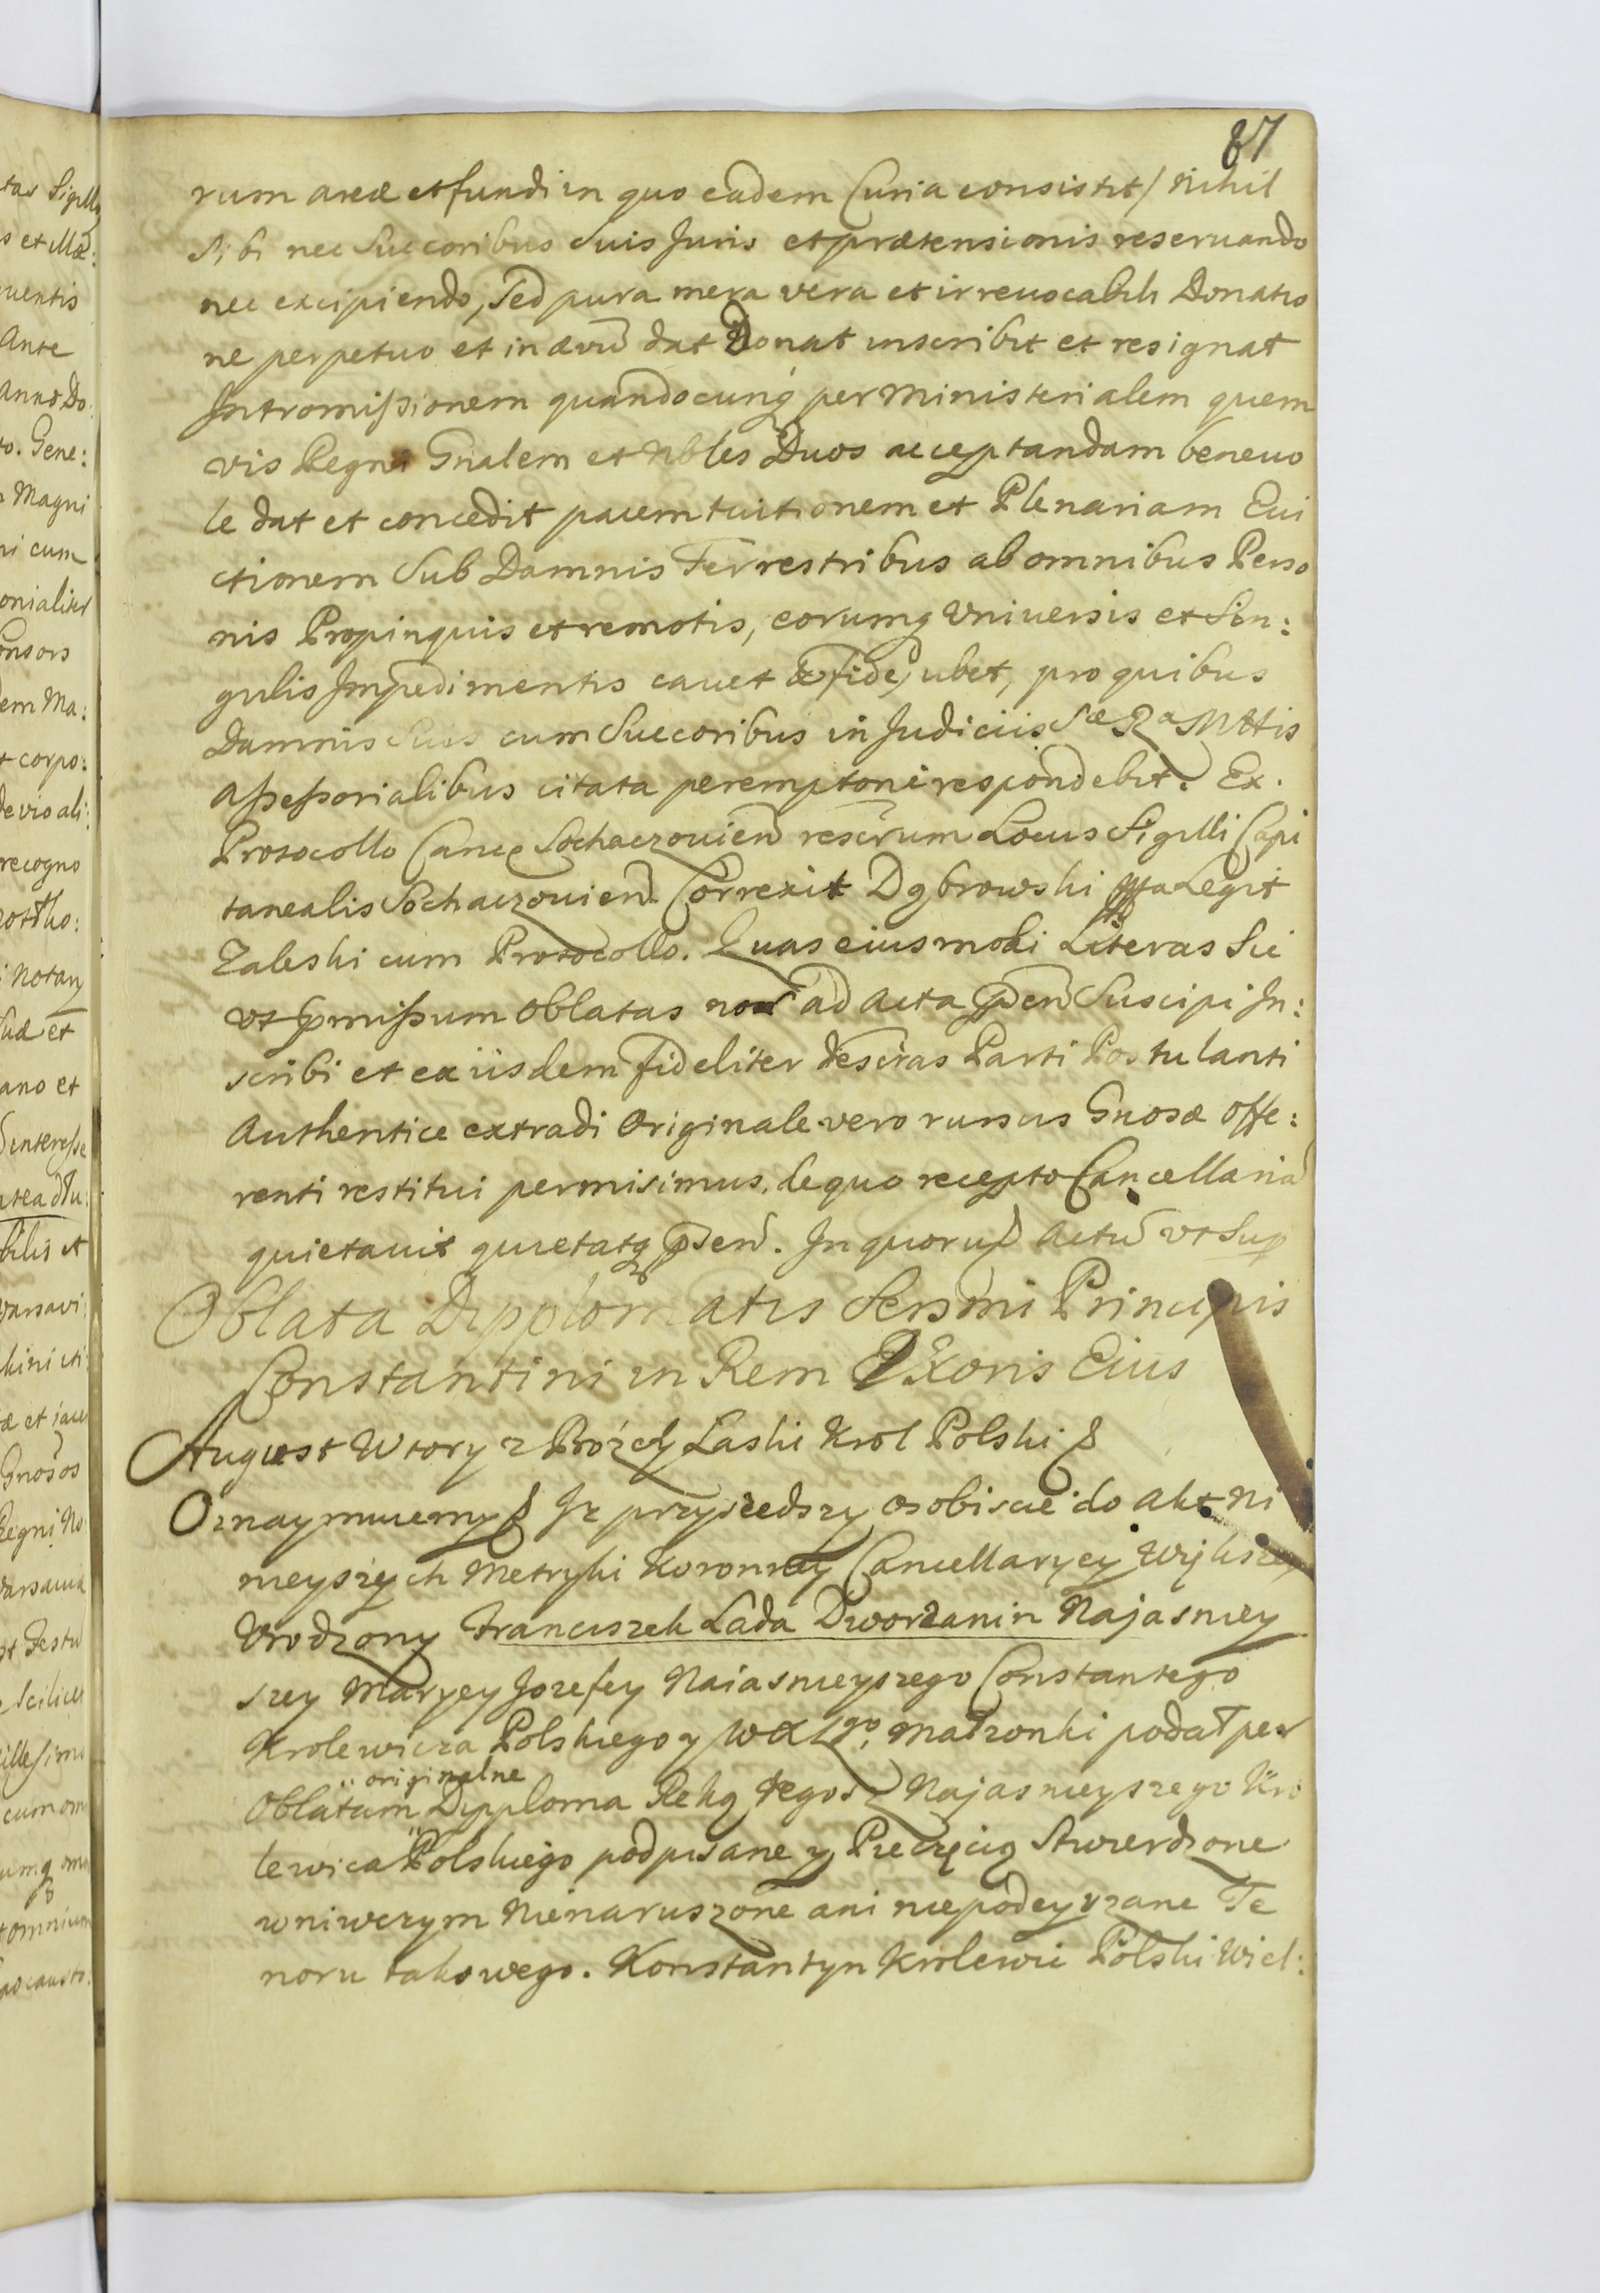 87
rum areæ et fundi in quo eadem Curia consistit / Nihil
Sibi nec Succoribus Suis Juris et prætensionis reseruando
nec excipiendo, Sed pura mera vera et irreuocabili Donatio
ne perpetuo et in ævũ dat Donat inscribit et resignat
Intromißionem quandocunq per Ministerialem quem
vis Regni Gnalem et Nbles Duos acceptandam beneuo
le dat et concedit pacem tuitionem et Plenariam Eui
ctionem Sub Damnis Terrestribus ab omnibus Perso
nis Propinquis et remotis, eorumq Vniuersis et Sin:
gulis Impedimentis cauet & fide jubet, pro quibus
Damnis Suis cum Succoribus in Judiciis Sæ Ræ Mttis
Aßeßorialibus citata peremptorie respondebit. Ex.
Protocollo Canc Sochaczouien rescrum Locus Sigilli Capi
tanealis Sochaczouien Correxit Dąbrowski Legit
Zaleski cum Protocollo. Quas eiusmodi Literas Sic
vt pmißum Oblatas nos ad Acta pñ Suscipi In:
scribi et ex iisdem fideliter descras Parti Postulanti
Authentice extradi Originale vero rursus Gnosæ Offe:
renti restitui permisimus, de quo recepto Cancellariã
quietauit quietatq psen. In quorũ Actũ vt Sup
Oblata Dipplomatis Sersmi Principis
Constantini in Rem Vxoris Eius
August Wtory z Bożey Łaski Krol Polski &
Oznaymuiemy & Iz przyszedszy osobiscie do Akt Ni
nieyszych Metryki Koronney Cancellaryey Większey
Vrodzony Franciszek Łada Dworzanin Najasniey
szey Maryey Jozefey Naiasnieyszego Constantego
Krolewicza Polskiego y WXLgo, Małzonki podał per
Oblatam originalne Dipploma Ręką tegosz Najasnieyszego Kro
lewica Polskiego podpisane y Pieczęcią Stwierdzone
wniwczym Nienaruszone ani niepodeyrzane Te
noru takowego. Konstantyn Krolewic Polski Wiel: